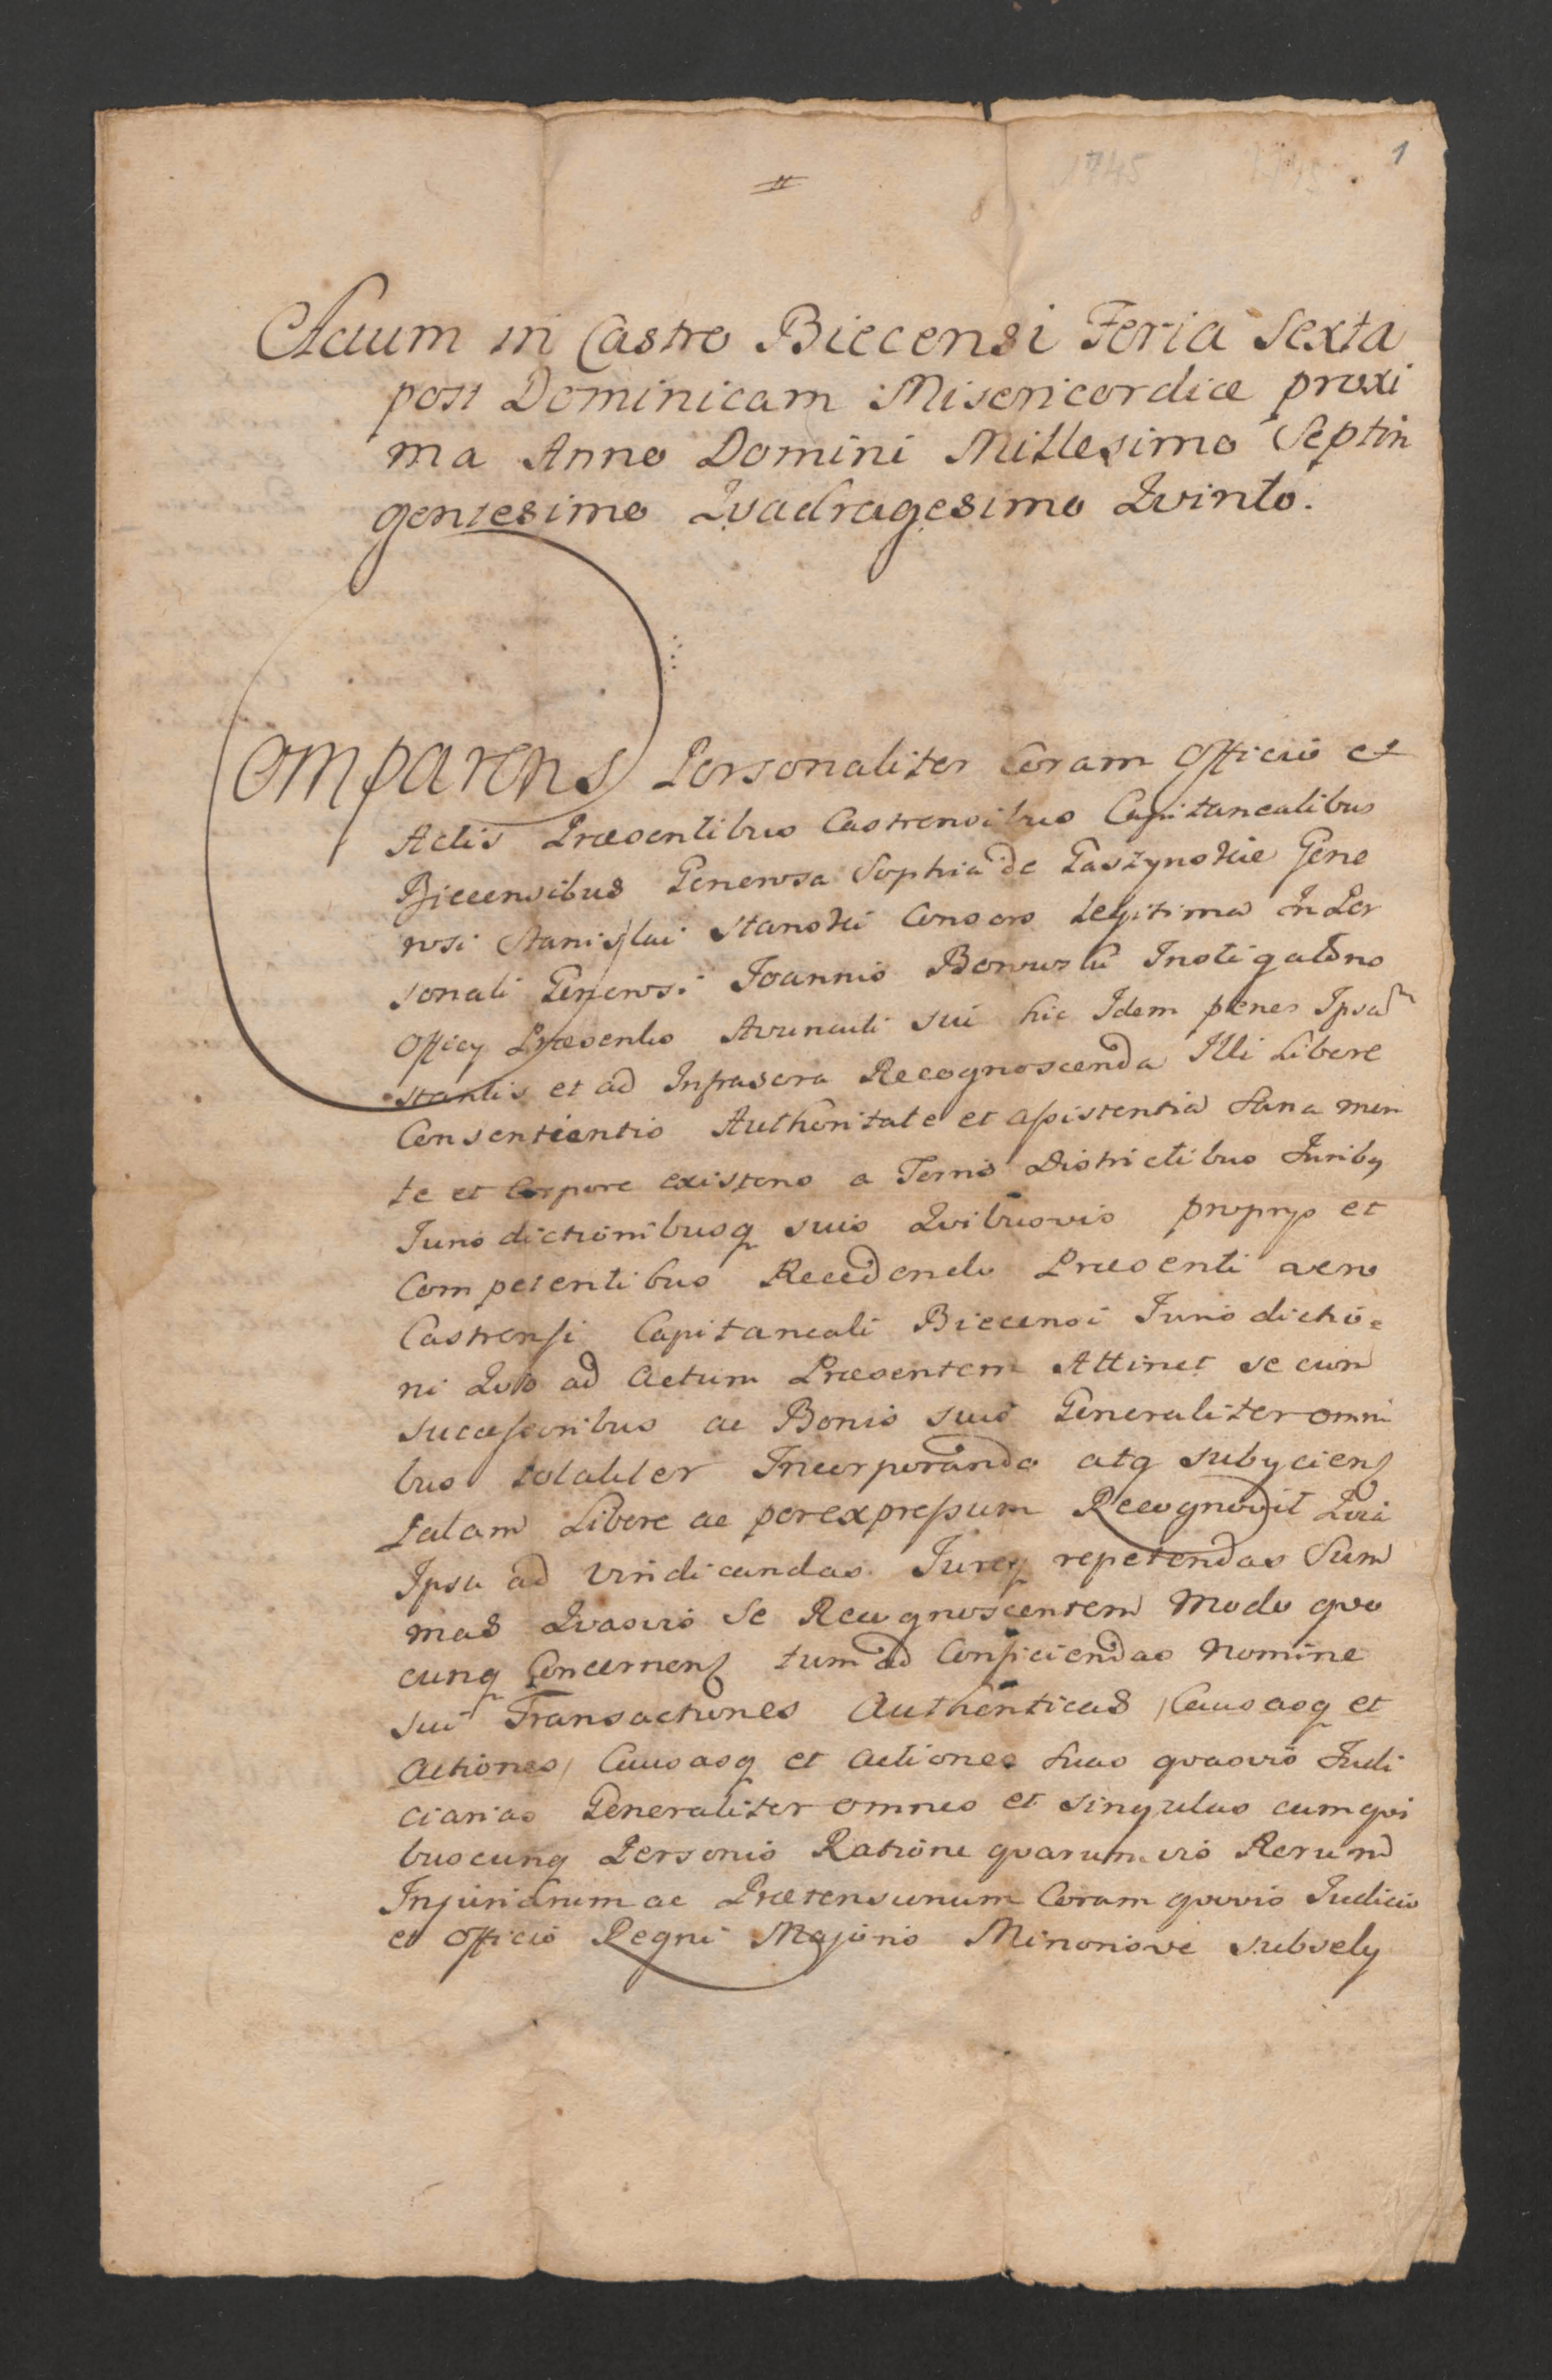 1745
1
Actum in Castro Biecensi Feria Sexta
post Dominicam Misericordiæ proxi
ma Anno Domini Millesimo Septin
gentesimo Qvadragesimo Qvinto.
Comparens Personaliter Coram Officio et
Actis Præsentibus Castrensibus Capitanealibus
Biecensibus Generosa Sophia de Gaszynskie Gene
rosi Stanislai Stanski Consors Legitima In Per
sonali Generosi Joannis Instigatoris
Officy Præsentis Avunculi sui hic Idem penes Ipsam
stantis et ad Infrascra Recognoscenda Illi Libere
Consentientis Authoritate et assistentia Sana men
te et Corpore existens a Terris Districtibus Juribq
Jurisdictionibusq suis Qvibusvis proprys et
Competentibus Recedendo Præsenti vero
Castrensi Capitaneali Biecensi Jurisdictio=
ni Qvo ad Actum Præsentem Attinet se cum
successoribus ac Bonis suis Generaliter omni
bus totaliter Incorporando atq subyciens
palam Libere ac per expressum Recognovit Qvia
Ipsa ad vindicandas Jureq repetendas Sum
mas Qvasvis Se Recognoscentem Modo qvo
cunq Concernens tum ad Conficiendas Nomine
sui Transactiones Authenticas /Causasq et
Actiones/ Causasq et Actiones suas qvasvis Judi
ciarias Generaliter omnes et singulas cum qvi
buscunq Personis Ratione qvarumvis Rerum
Injuriarum ac Prætensionum Coram qvovis Judicio
et Officio Regni Majoris Minorisve subsely